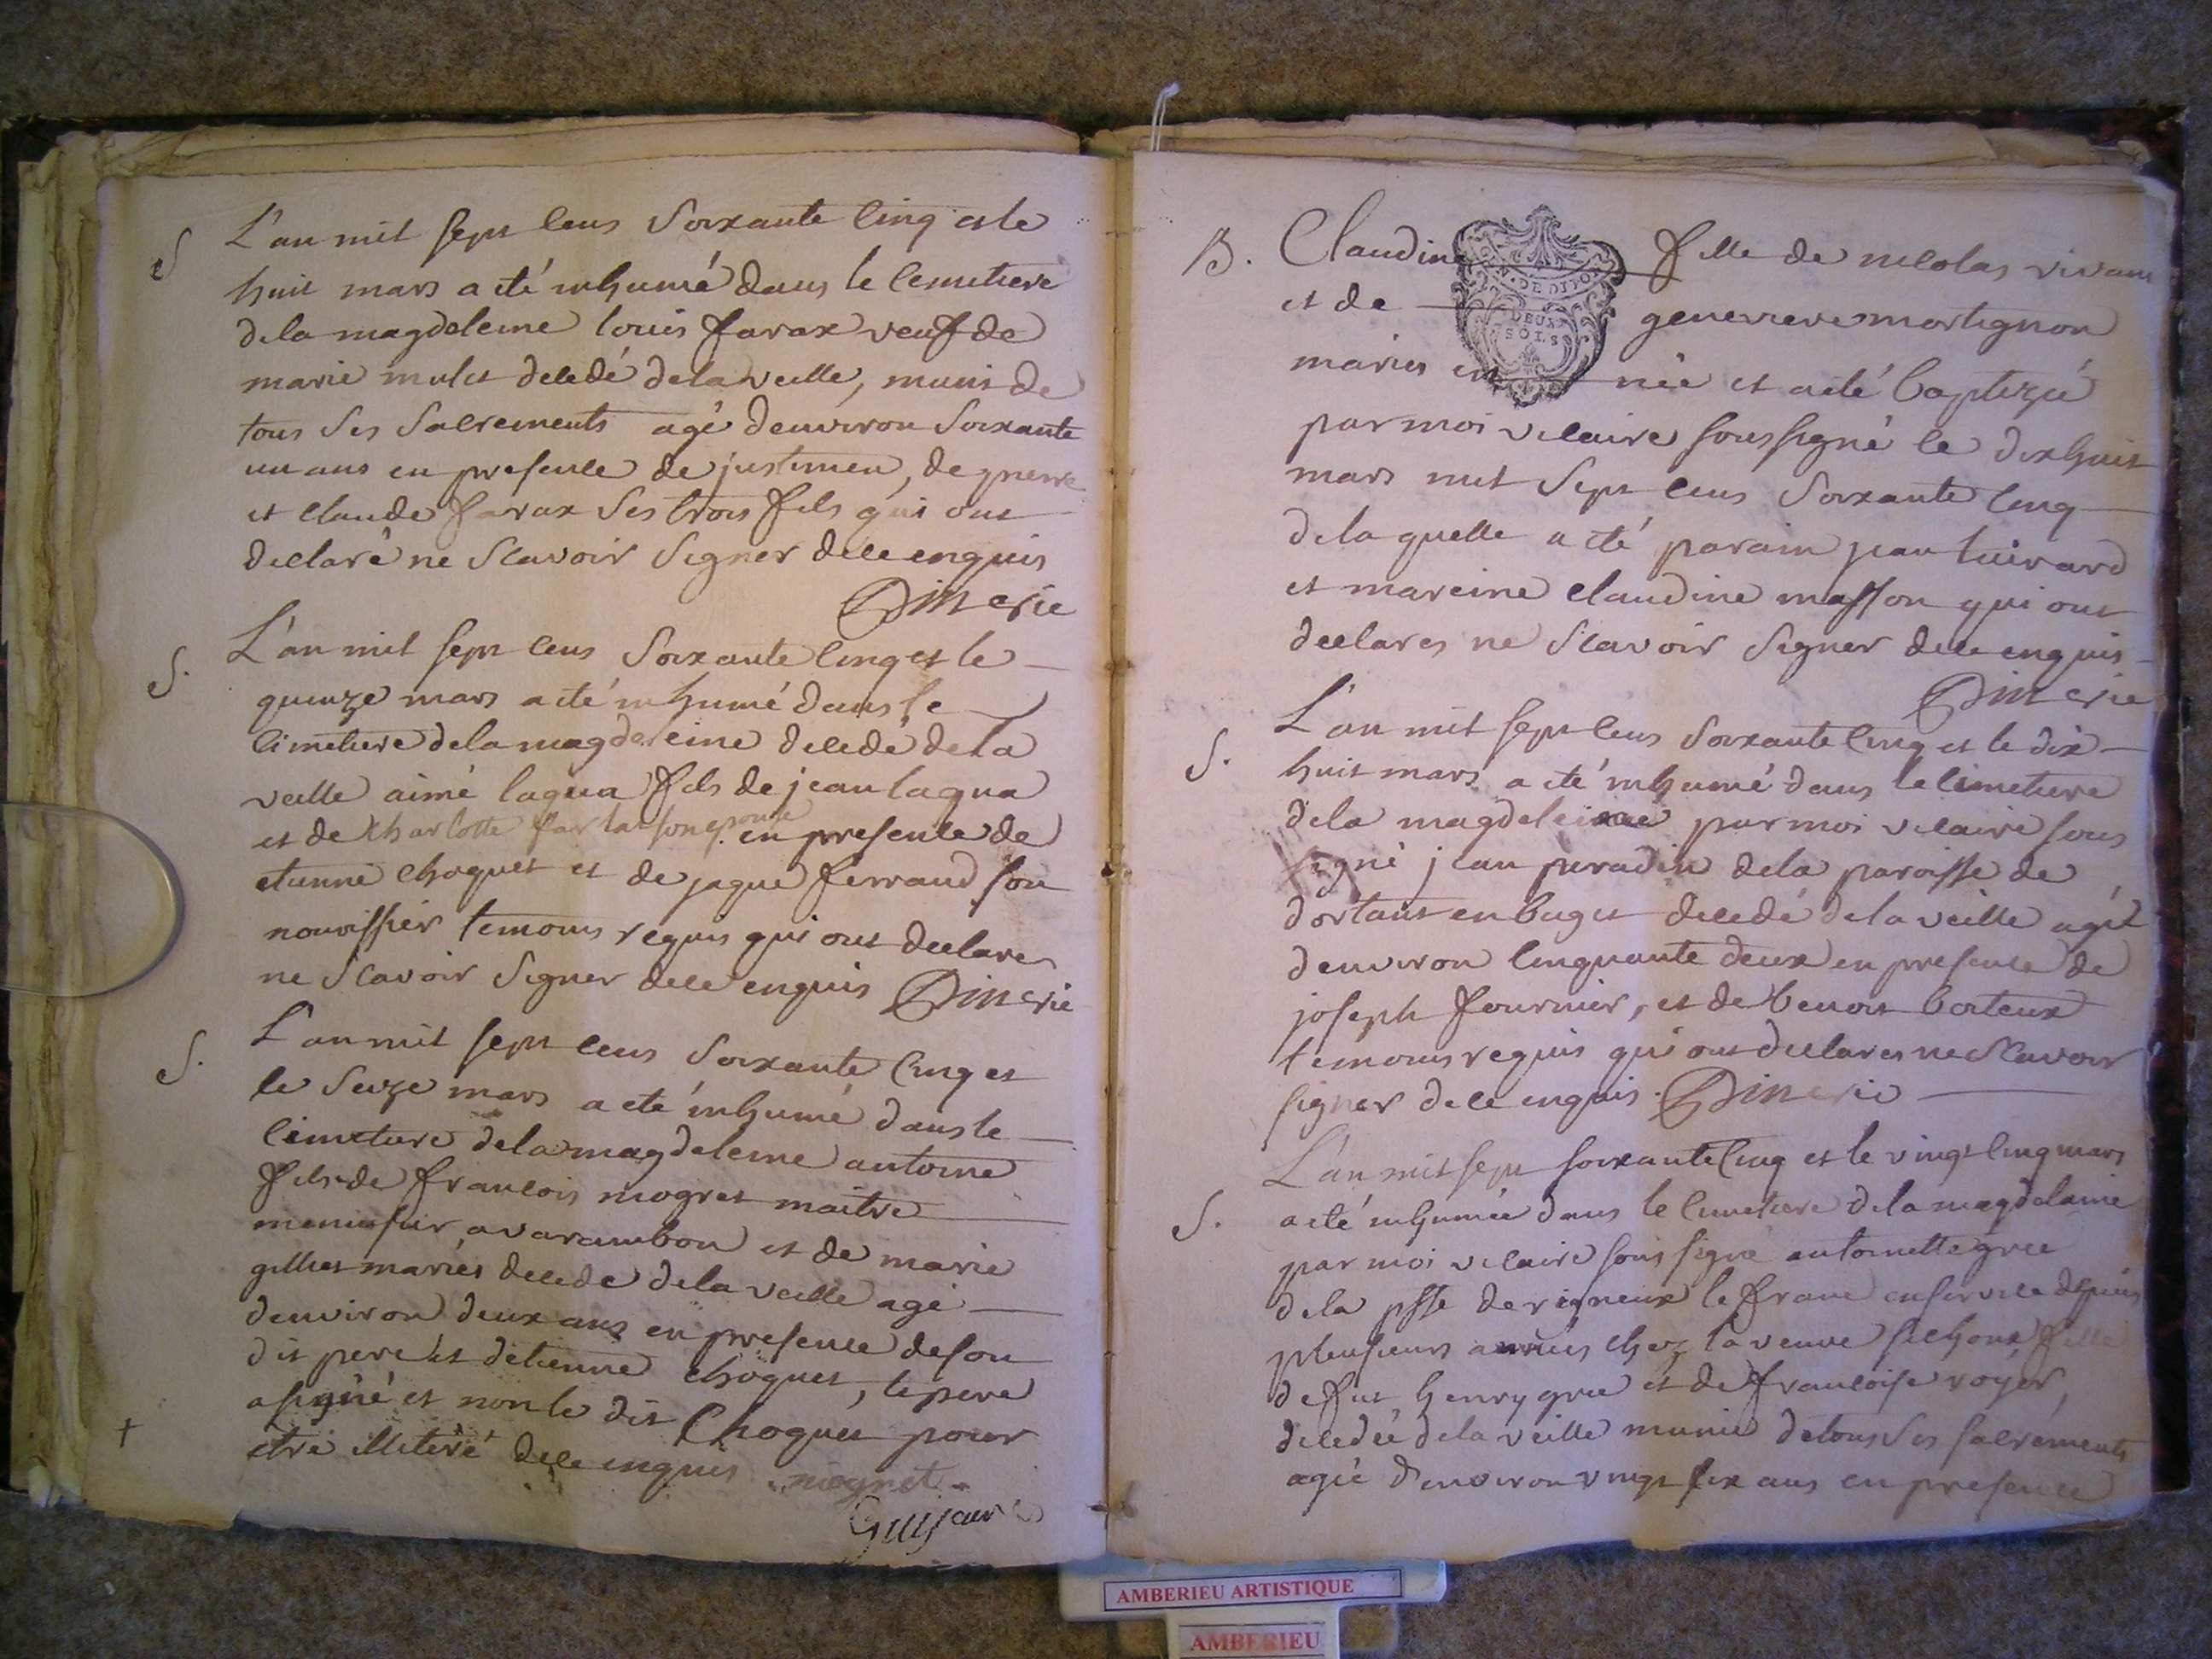 S L'an mil sept cens soixante cinq et le
huit mars a eté inhumé dans le cemetiere
de la magdeleine louis farax veuf de
marie mulet decedé de la veille, muni de
tous ses sacrements agé denviron soixante
un ans en presence de justinien, de pierre
et claude farax ses trois fils qui ont
declaré ne scavoir signer de ce enquis
Dinerie
S. L'an mil sept cens soixante cinq et le
quinze mars a eté inhumé dans le
cimetiere de la magdeleine decedé de la
veille aimé lagua fils de jean lagua
et de charlotte son epouse en presence de
etienne choquet et de jaque ferrand son
nourissier temoins requis qui ont declares
ne scavoir signer de ce enquis Dinerie
S. L'an mil sept cens soixante cinq et
le seize mars a eté inhumé dans le
cimetiere de la magdeleine antoine
fils de francois mogret maitre
menusier a varambon et de marie
gillet mariés decedé de la veille agé
denviron deux ans en presence de son
dit pere et detienne choquet, le pere
a signé et non le dit Choquet pour
+ etre illiteré de ce enquis mogret
Guy cur
B. Claudine fille de nicolas vivant
et de genevieve martignon
mariés est née et a eté baptizée
par moi vicaire soussigné le dix huit
mars mil sept cens soixante cinq
de laquelle a eté parain jean tuirard
et mareine claudine masson qui ont
declares ne scavoir signer de ce enquis
Dinerie
S. L'an mil sept cens soixante cinq et le dix
huit mars a eté inhumé dans le cimetiere
de la magdeleine par moi vicaire sous
signé jean peradin de la paroisse de
dortant en buget decedé de la veille agé
denviron cinquante deux en presence de
joseph fournier, et de benoit boiteux
temoins requis qui ont declares ne scavoir
signer de ce enquis. Dinerie
L'an mil sept soixante cinq et le vingt cinq mars
S. a eté inhumée dans le cimetiere de la magdelaine
par moi vicaire sous signé antoinette grée
de la psse de rigneux le franc en service depuis
plusieurs années chez la veuve sichoux fille
de fut henry grée et de francoise royer,
decedée de la veille munie de tous ses sacrements
agée denviron vingt six ans en presence
GEN. DE DIJON
DEUX
SOLS
AMBERIEU ARTISTIQUE
AMBERIEU